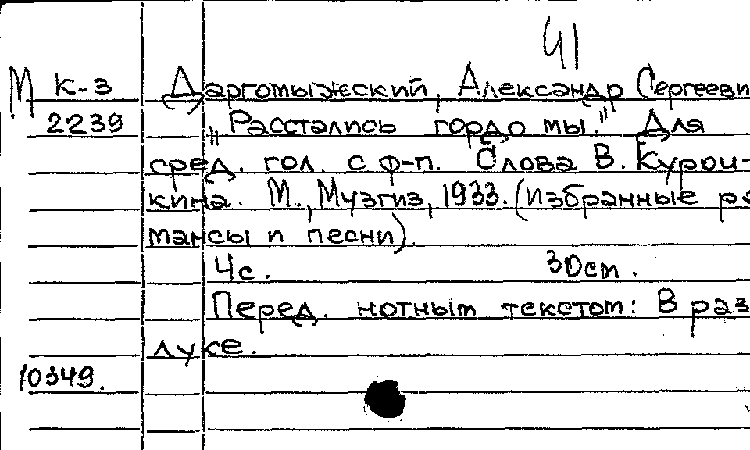 41
М к-з Даргомыжский, Александр Сергееви
2239 "Расстались гордо мы." Для
сред. гол. с ф-п. Слова В. Куроч-
кина. М., Музгиз, 1933. (Избранные ро
мансы и песни).
4с. 30см.
Перед. нотным текстом: В раз
луке.
10349.